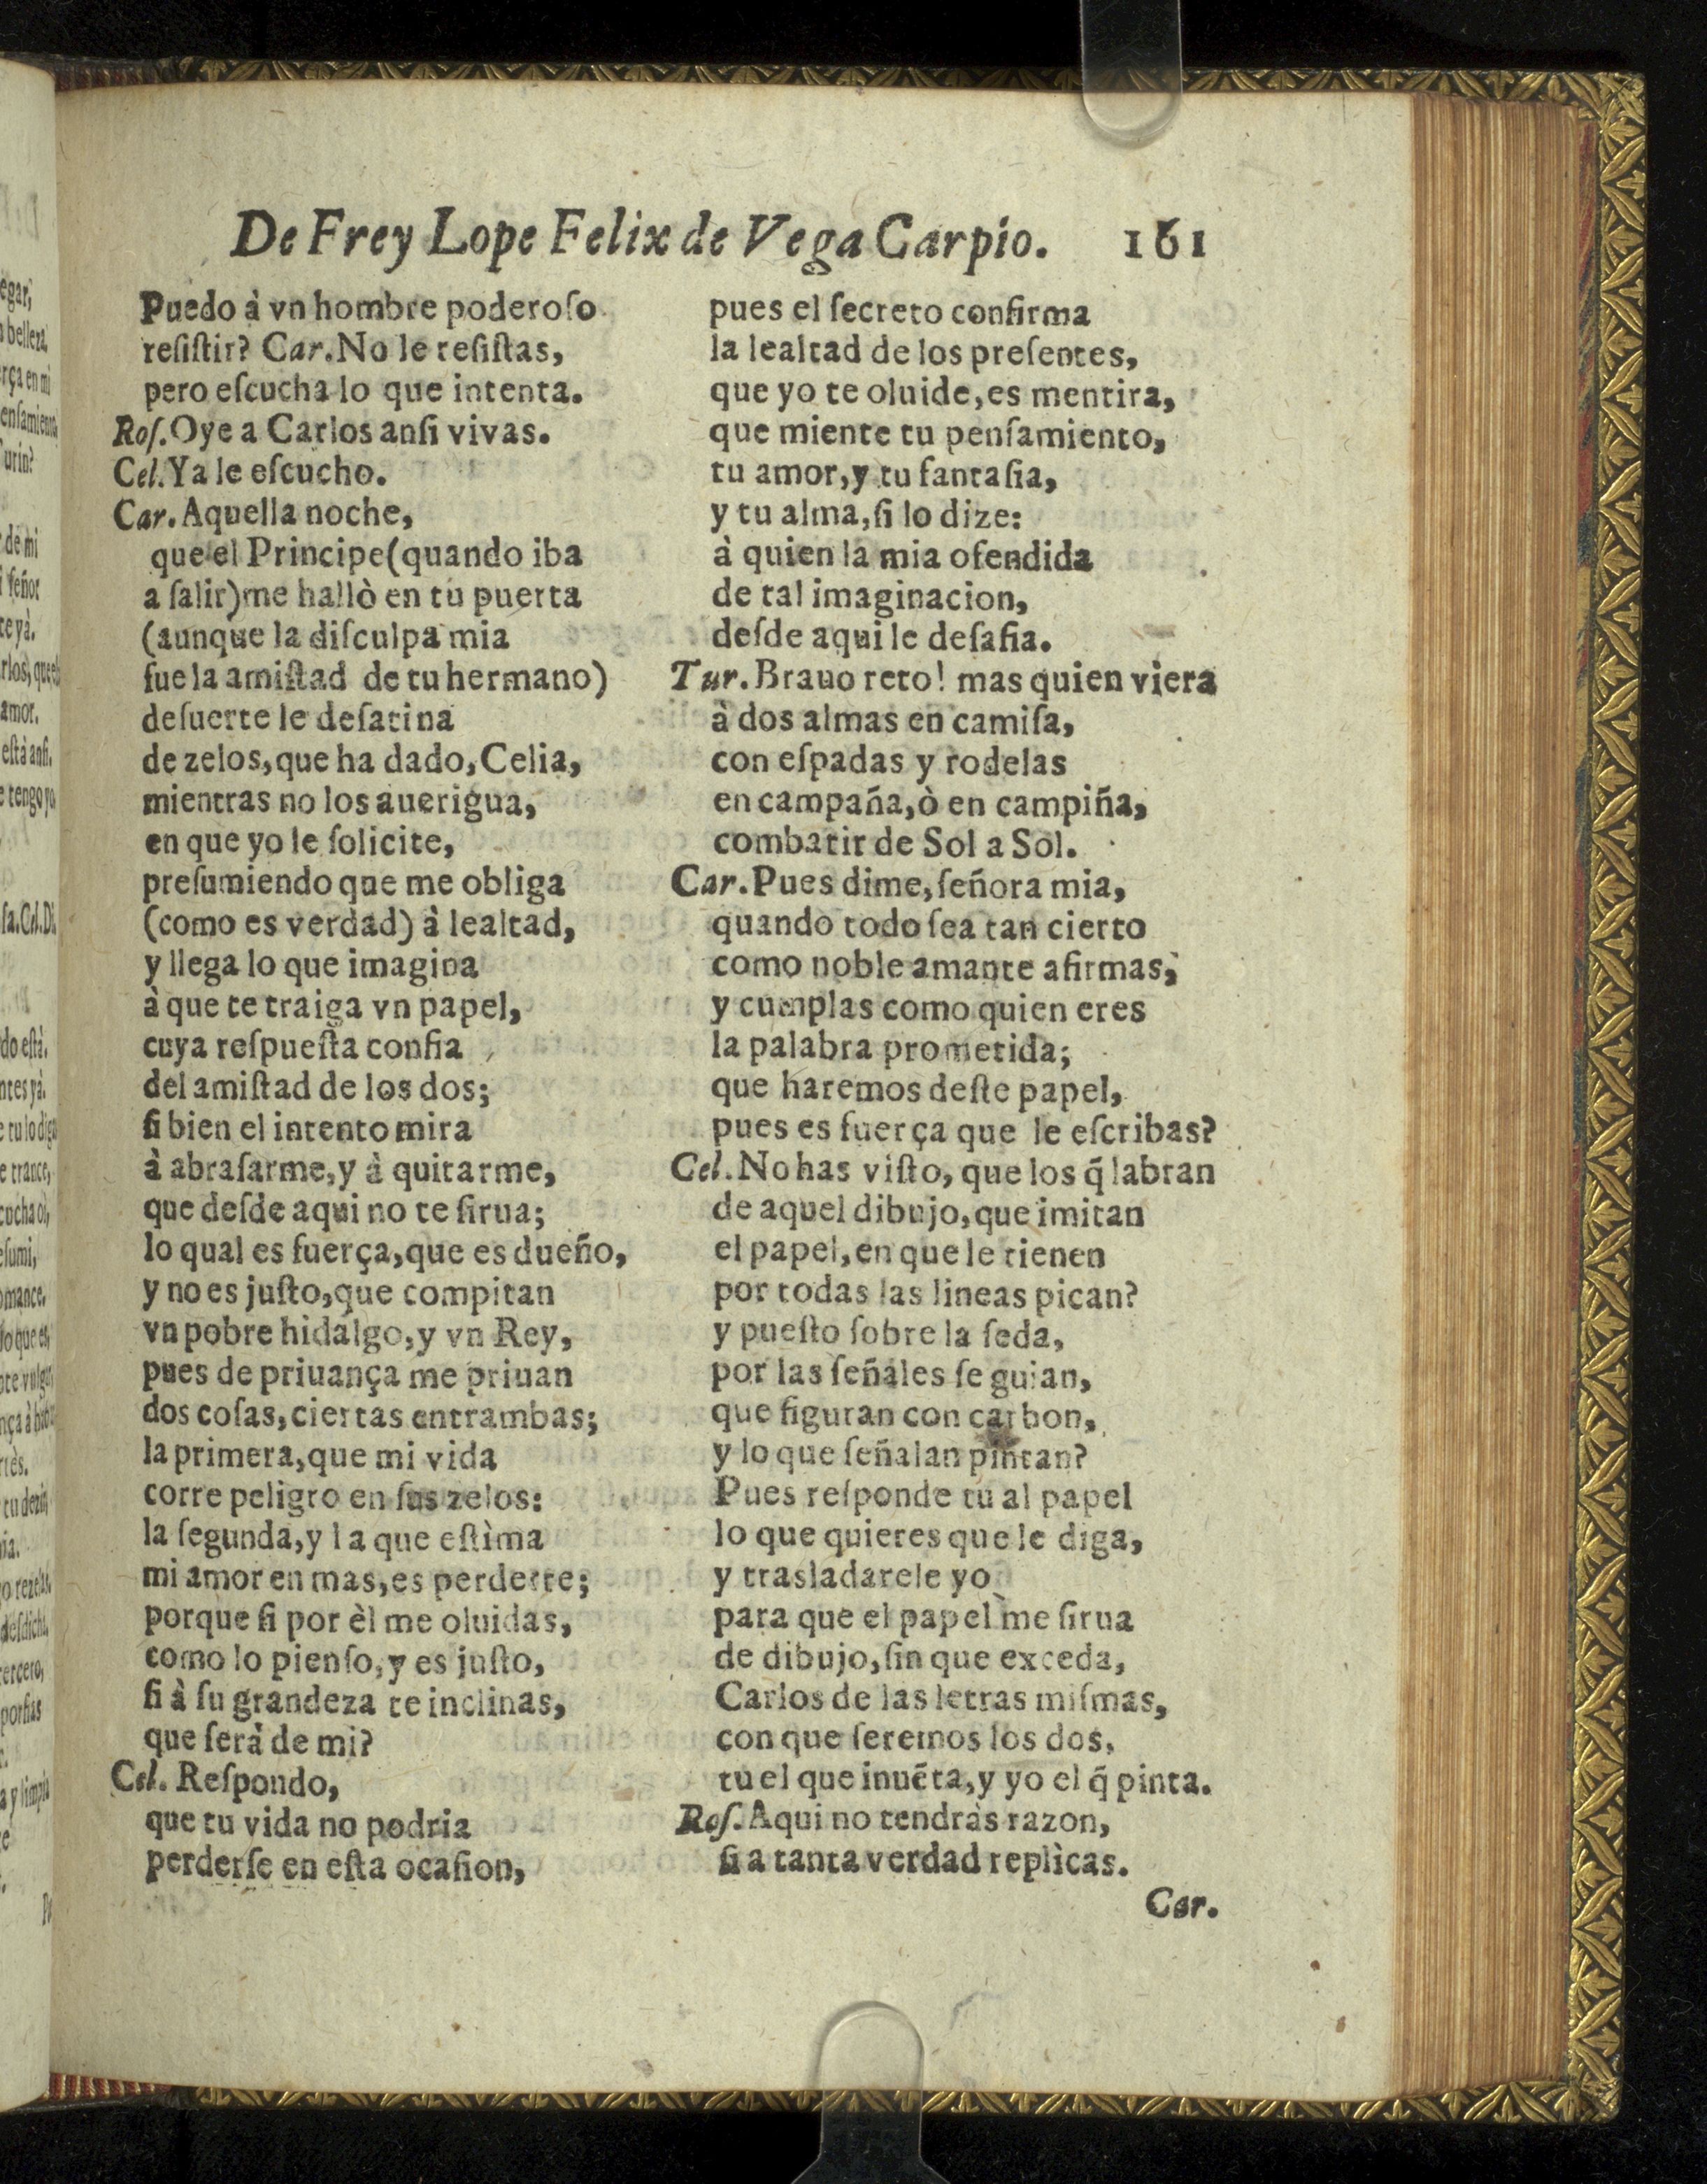 De Frey Lope Felix de Vega Carpio. 161
Puedo à vn hombre poderoſo
reſiſtir? Car. No le reſiſtas,
pero eſcucha lo que intenta.
Roſ. Oye a Carlos anſi vivas.
Cel. Ya le eſcucho.
Car. Aquella noche,
que el Principe (quando iba
a ſalir) me hallò en tu puerta
(aunque la diſculpa mia
fue la amiſtad de tu hermano)
deſuerte le deſatina
de zelos, que ha dado, Celia,
mientras no los auerigua,
en que yo le ſolicite,
preſumiendo que me obliga
(como es verdad) à lealtad,
y llega lo que imagina
à que te traiga vn papel,
cuya reſpueſta confia
del amiſtad de los dos;
ſi bien el intento mira
à abraſarme, y à quitarme,
que deſde aqui no te ſirua;
lo qual es fuerça, que es dueño,
y no es juſto, que compitan
vn pobre hidalgo, y vn Rey,
pues de priuança me priuan
dos coſas, ciertas entrambas;
la primera, que mi vida
corre peligro en ſus zelos:
la ſegunda, y la que eſtìma
mi amor en mas, es perderte;
porque ſi por èl me oluidas,
como lo pienſo, y es juſto,
ſi à ſu grandeza te inclinas,
que ſerà de mi?
Cel. Reſpondo,
que tu vida no podria
perderſe en eſta ocaſion,
pues el ſecreto confirma
la lealtad de los preſentes,
que yo te oluide, es mentira,
que miente tu penſamiento,
tu amor, y tu fantaſia,
y tu alma, ſi lo dize:
à quien la mia ofendida
de tal imaginacion,
deſde aqui le deſafia.
Tur. Brauo reto! mas quien viera
à dos almas en camiſa,
con eſpadas y rodelas
en campaña, ò en campiña,
combatir de Sol a Sol.
Car. Pues dime, ſeñora mia,
quando todo ſea tan cierto
como noble amante afirmas,
y cumplas como quien eres
la palabra prometida;
que haremos deſte papel,
pues es fuerça que le eſcribas?
Cel. No has viſto, que los q̃ labran
de aquel dibujo, que imitan
el papel, en que le tienen
por todas las lineas pican?
y pueſto ſobre la ſeda,
por las ſeñales ſe guian,
que figuran con carbon,
y lo que ſeñalan pintan?
Pues reſponde tu al papel
lo que quieres que le diga,
y trasladarele yo
para que el papel me ſirua
de dibujo, ſin que exceda,
Carlos de las letras miſmas,
con que ſeremos los dos,
tu el que inuẽta, y yo el q̃ pinta.
Roſ. Aqui no tendràs razon,
ſi a tanta verdad replìcas.
Car.